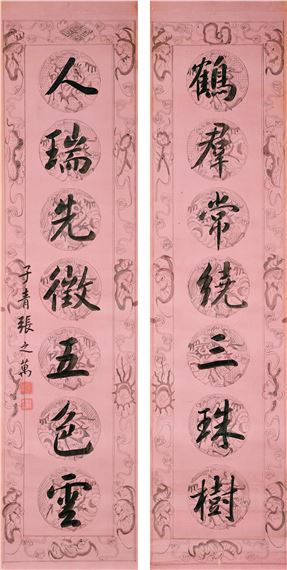 鶴羣常繞三珠樹
人瑞先徵五色雲
子青張之萬